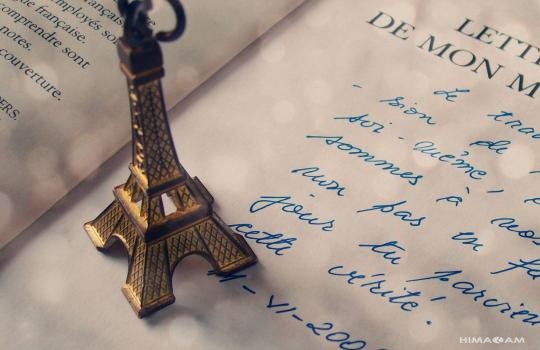 française
employés so
que française.
notes.
comprendre sont
couverture.
ERS.
LETT
DE MON M
- Le trav
sion de
soi-même,
sommes à nos
non pas en fa
jour tu parvien
cette vérité.
- VI-200
HIMA AM